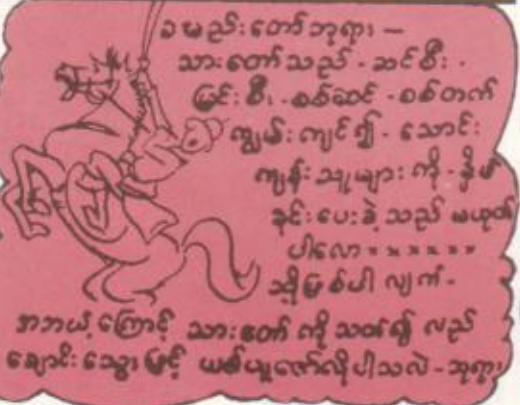 ခမည်းတော်ဘုရား —
သားတော်သည် - ဆင်စီး -
မြင်းစီး - စစ်ဆင် - စစ်တက်
ကျွမ်းကျင်၍ - သောင်း
ကျန်းသူများကို - နှိမ်
နင်းပေးခဲ့သည် မဟုတ်
ပါလော × × × × × ×
သို့ဖြစ်ပါလျက် -
အဘယ့်ကြောင့် သားတော်ကို သတ်၍ လည်
ချောင်းသွေးဖြင့် ယစ်ပူဇော်လိုပါသလဲ - ဘုရား